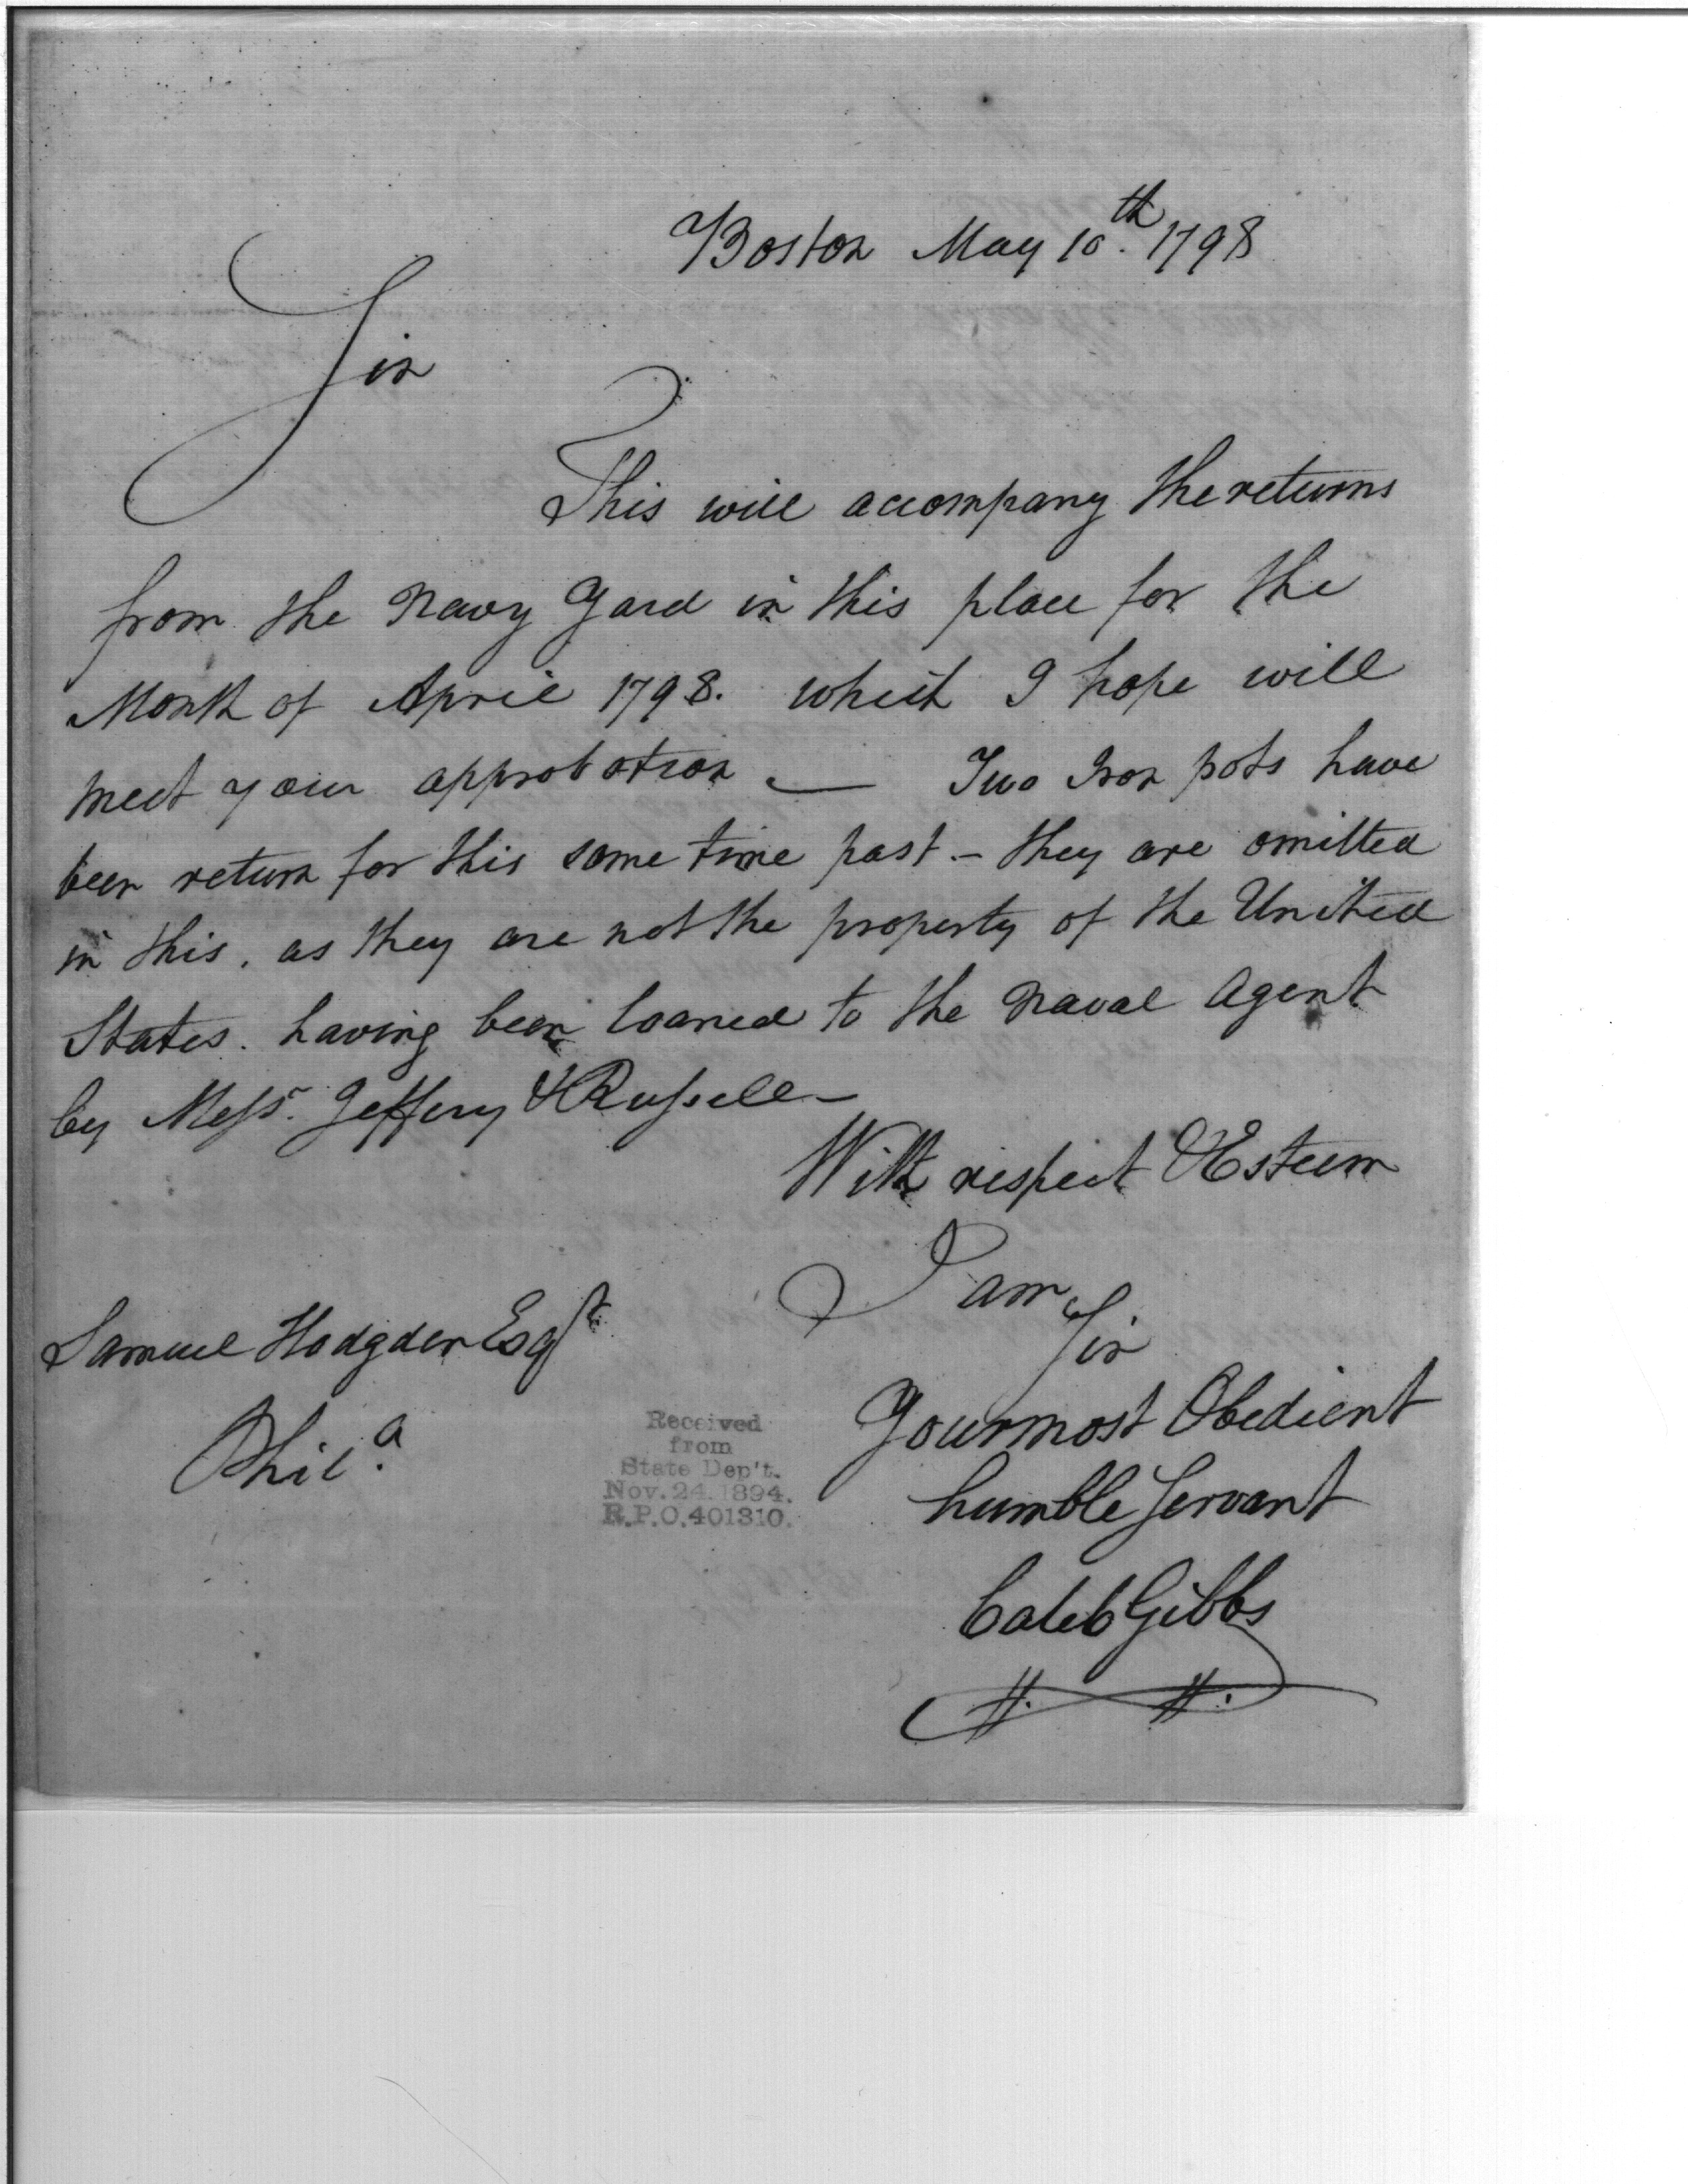 Boston May 10th. 1798
Sir
This will accompany the returns
from the Navy Yard in this place for the
Month of April 1798. which I hope will
meet your approbation. — Two Iron pots have
been return for this some time past. – they are omitted
in this, as they are not the property of the United
States. having been loaned to the Naval Agent
by Messrs. Jeffery & Russell –
With respect & Esteem
I am
Sir
Samuel Hodgden Esqr
Your most Obedient
Phila.
humble Servant
Caleb Gibbs
Received
from
State Dep't.
Nov. 24. 1894.
R.P.O. 401310.